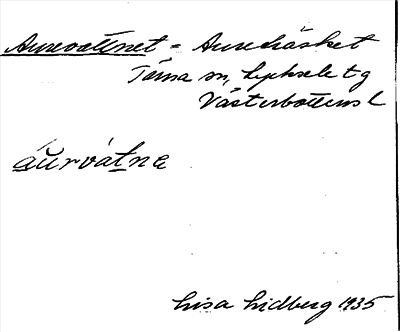 Aurevattnet = Aureträsket
Tärna sn, Lycksele tg
Västerbottens l
áŭrvátne
Lisa Lidberg 1935